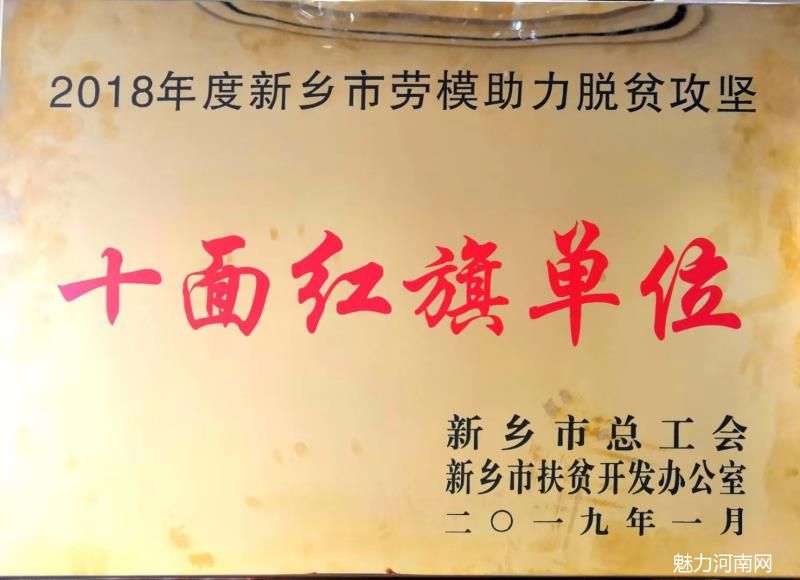 2018年度新乡市劳模助力脱贫攻坚
十面红旗单位
新乡市总工会
新乡市扶贫开发办公室
二〇一九年一月
魅力河南网